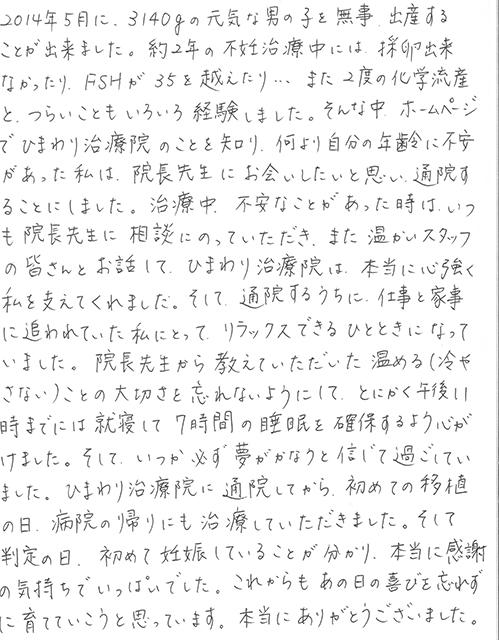 2014年5月に、3140gの元気な男の子を無事、出産する
ことが出来ました。約2年の不妊治療中には、採卵出来
なかったり、FSHが35を越えたり…また2度の化学流産
と、つらいこともいろいろ経験しました。そんな中、ホームページ
でひまわり治療院のことを知り、何より自分の年齢に不安
があった私は、院長先生にお会いしたいと思い、通院す
ることにしました。治療中、不安なことがあった時は、いつ
も院長先生に相談にのっていただき、また温かいスタッフ
の皆さんとお話して、ひまわり治療院は、本当に心強く
私を支えてくれました。そして、通院するうちに、仕事と家事
に追われていた私にとって、リラックスできるひとときになって
いました。院長先生から教えていただいた温める(冷や
さない)ことの大切さを忘れないようにして、とにかく午後11
時までには就寝して7時間の睡眠を確保するよう心が
けました。そして、いつか必ず夢がかなうと信じて過ごしてい
ました。ひまわり治療院に通院してから、初めての移植
の日、病院の帰りにも治療していただきました。そして
判定の日、初めて妊娠していることが分かり、本当に感謝
の気持ちでいっぱいでした。これからもあの日の喜びを忘れず
に育てていこうと思っています。本当にありがとうございました。